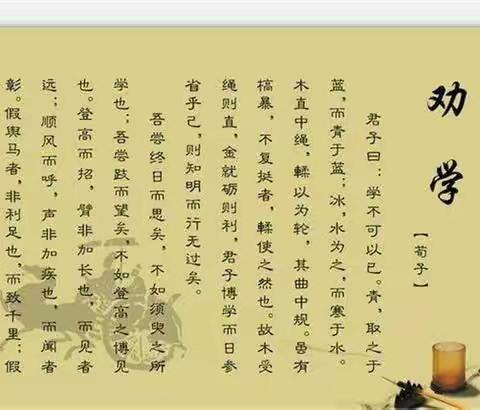 劝学
【荀子】
君子曰：学不可以已。青，取之于
蓝，而青于蓝；冰，水为之，而寒于水。
木直中绳，輮以为轮，其曲中规。虽有
槁暴，不复挺者，輮使之然也。故木受
绳则直，金就砺则利，君子博学而日参
省乎己，则知明而行无过矣。
吾尝终日而思矣，不如须臾之所
学也；吾尝跂而望矣，不如登高之博见
也。登高而招，臂非加长也，而见者
远；顺风而呼，声非加疾也，而闻者
彰。假舆马者，非利足也，而致千里；假